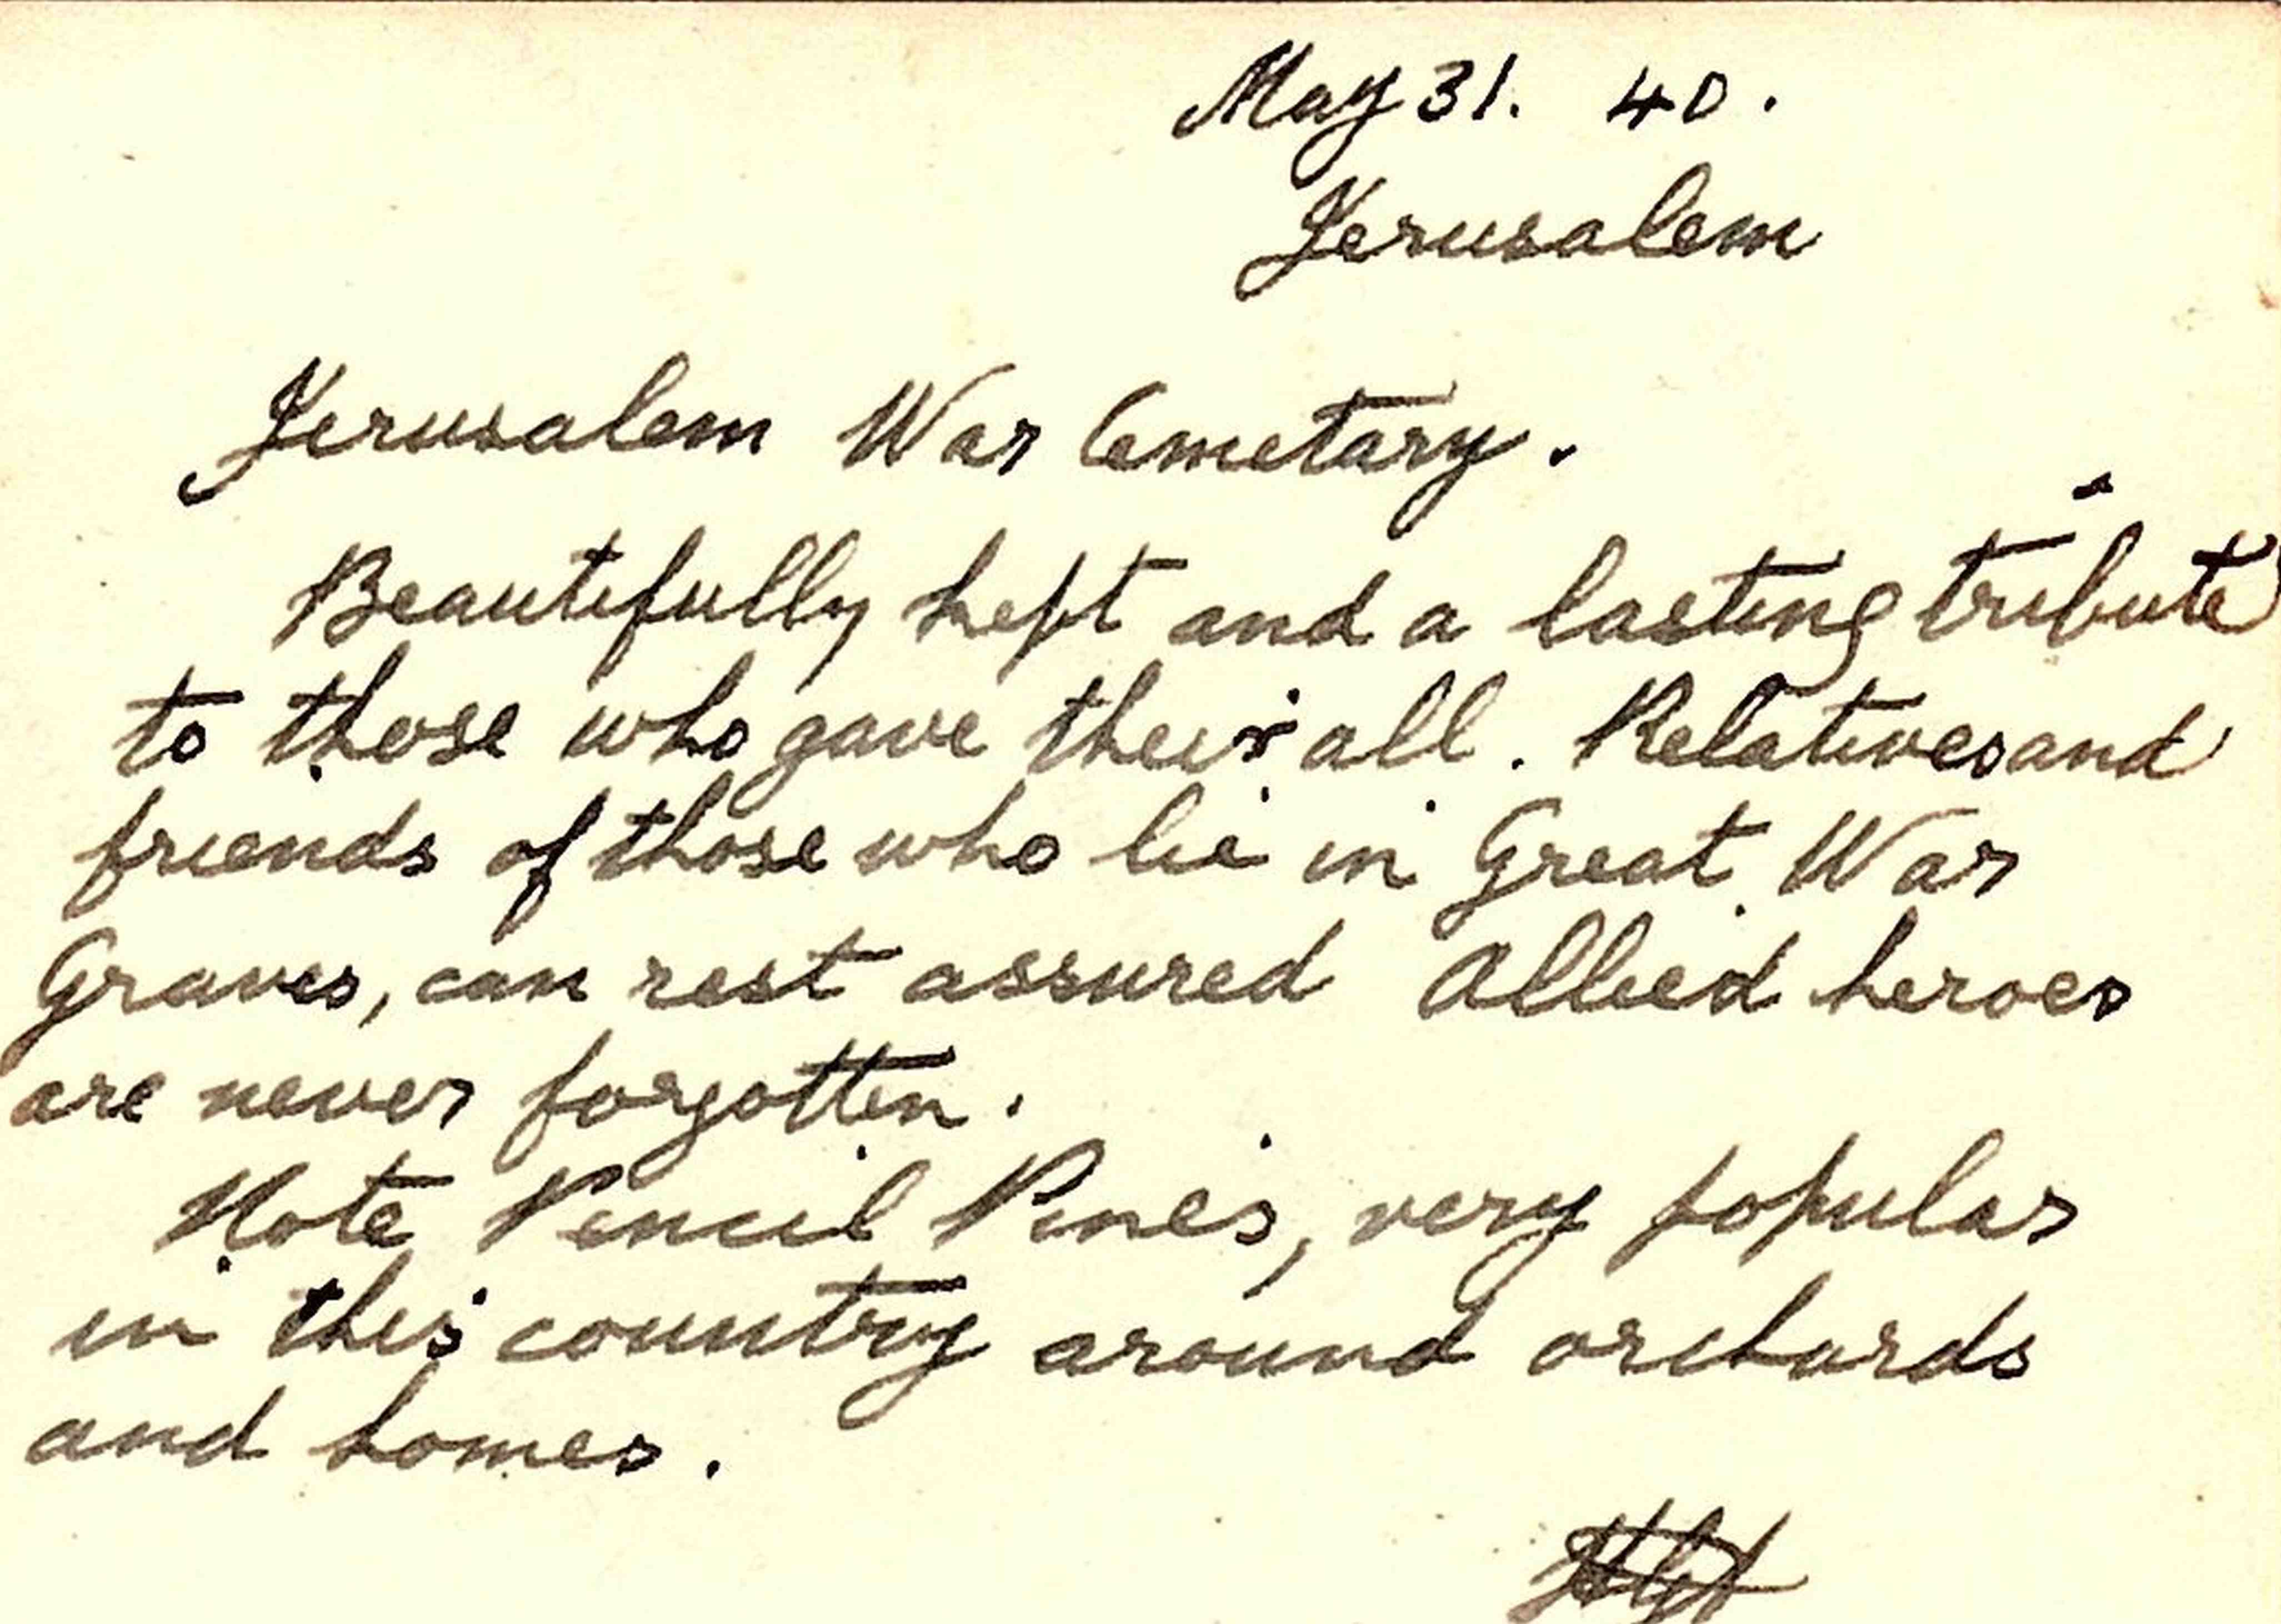 May 31. 40.
Jerusalem
Jerusalem War Cemetary.
Beautifully kept and a lasting tribute
to those who gave their all. Relatives and
friends of those who lie in Great War
Graves, can rest assured Allied heroes
are never forgotten.
Note Pencil Pines, very popular
in this country around orchards
and homes.